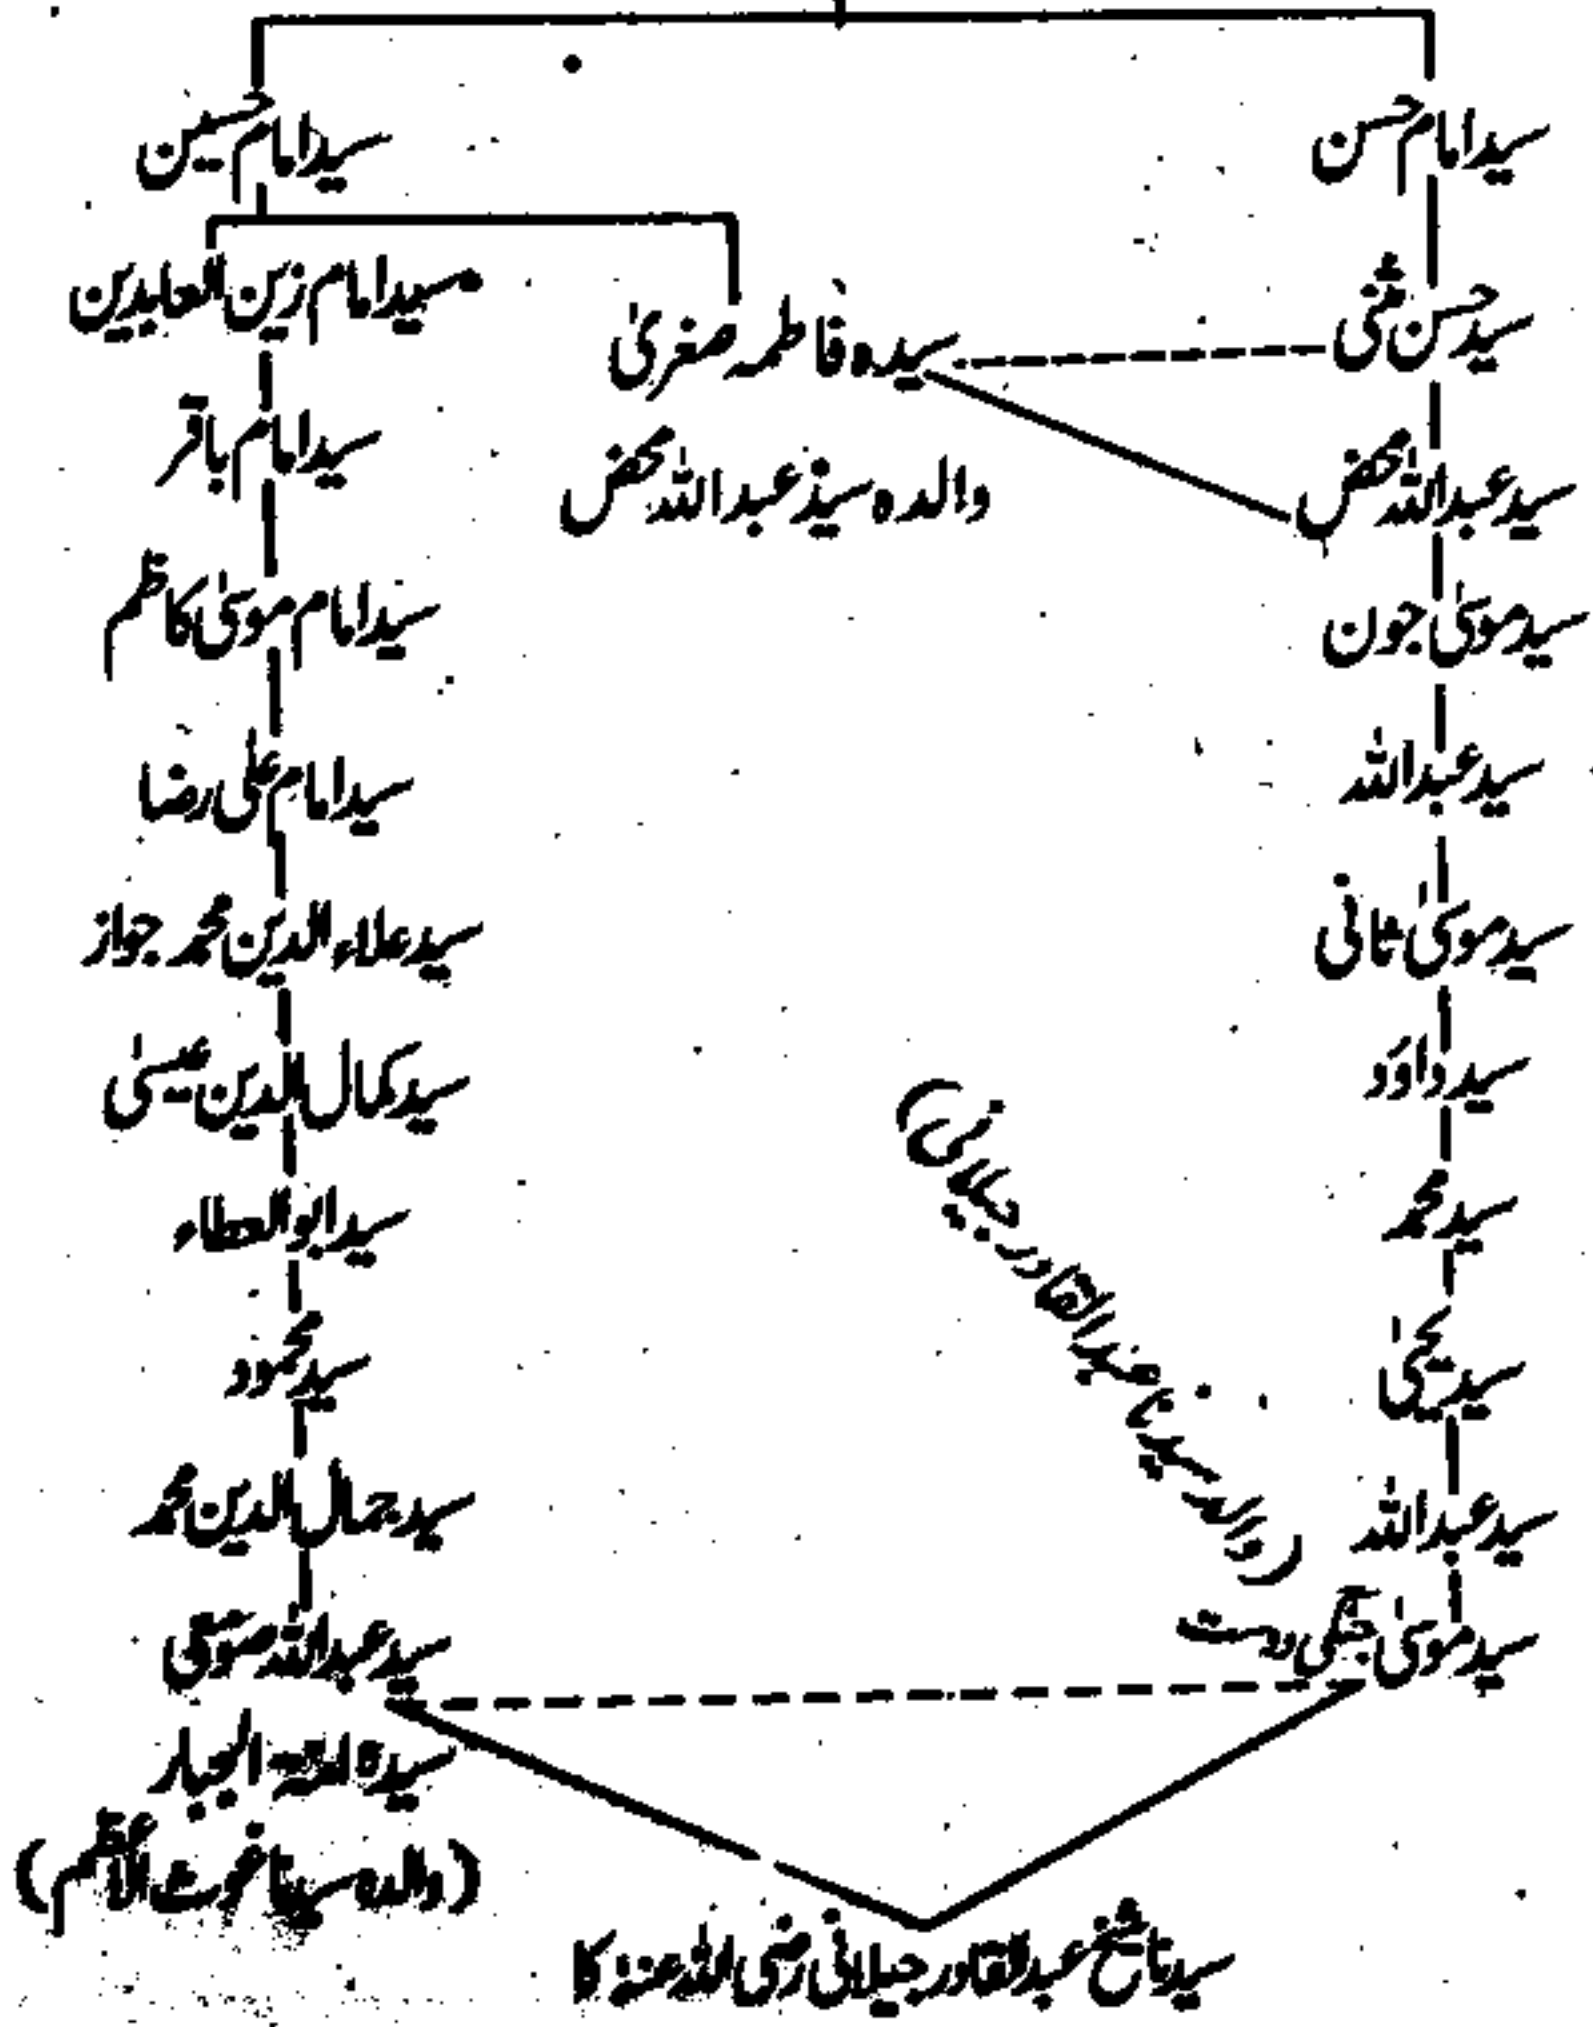 سید امام حسن
سید حسن مثنی
سید عبداللہ محض
سید موسیٰ جون
سید عبداللہ
سید موسیٰ ثانی
سید داؤد
سید محمد
سید یحییٰ
سید عبداللہ
سید موسیٰ جنگی دوست
(والد سیدنا شیخ عبدالقادر جیلانی)
سیدہ فاطمہ صغریٰ
والدہ سید عبداللہ محض
سید امام حسین
سید امام زین العابدین
سید امام باقر
سید امام موسیٰ کاظم
سید امام علی رضا
سید علاء الدین محمد جواز
سید کمال الدین عیسیٰ
سید ابو العطاء
سید محمود
سید جمال الدین محمد
سید عبداللہ صومعی
سیدہ امۃ الجبار
(والدہ سیدنا غوث الاعظم)
سیدنا شیخ عبدالقادر جیلانی رضی اللہ عنہ کا